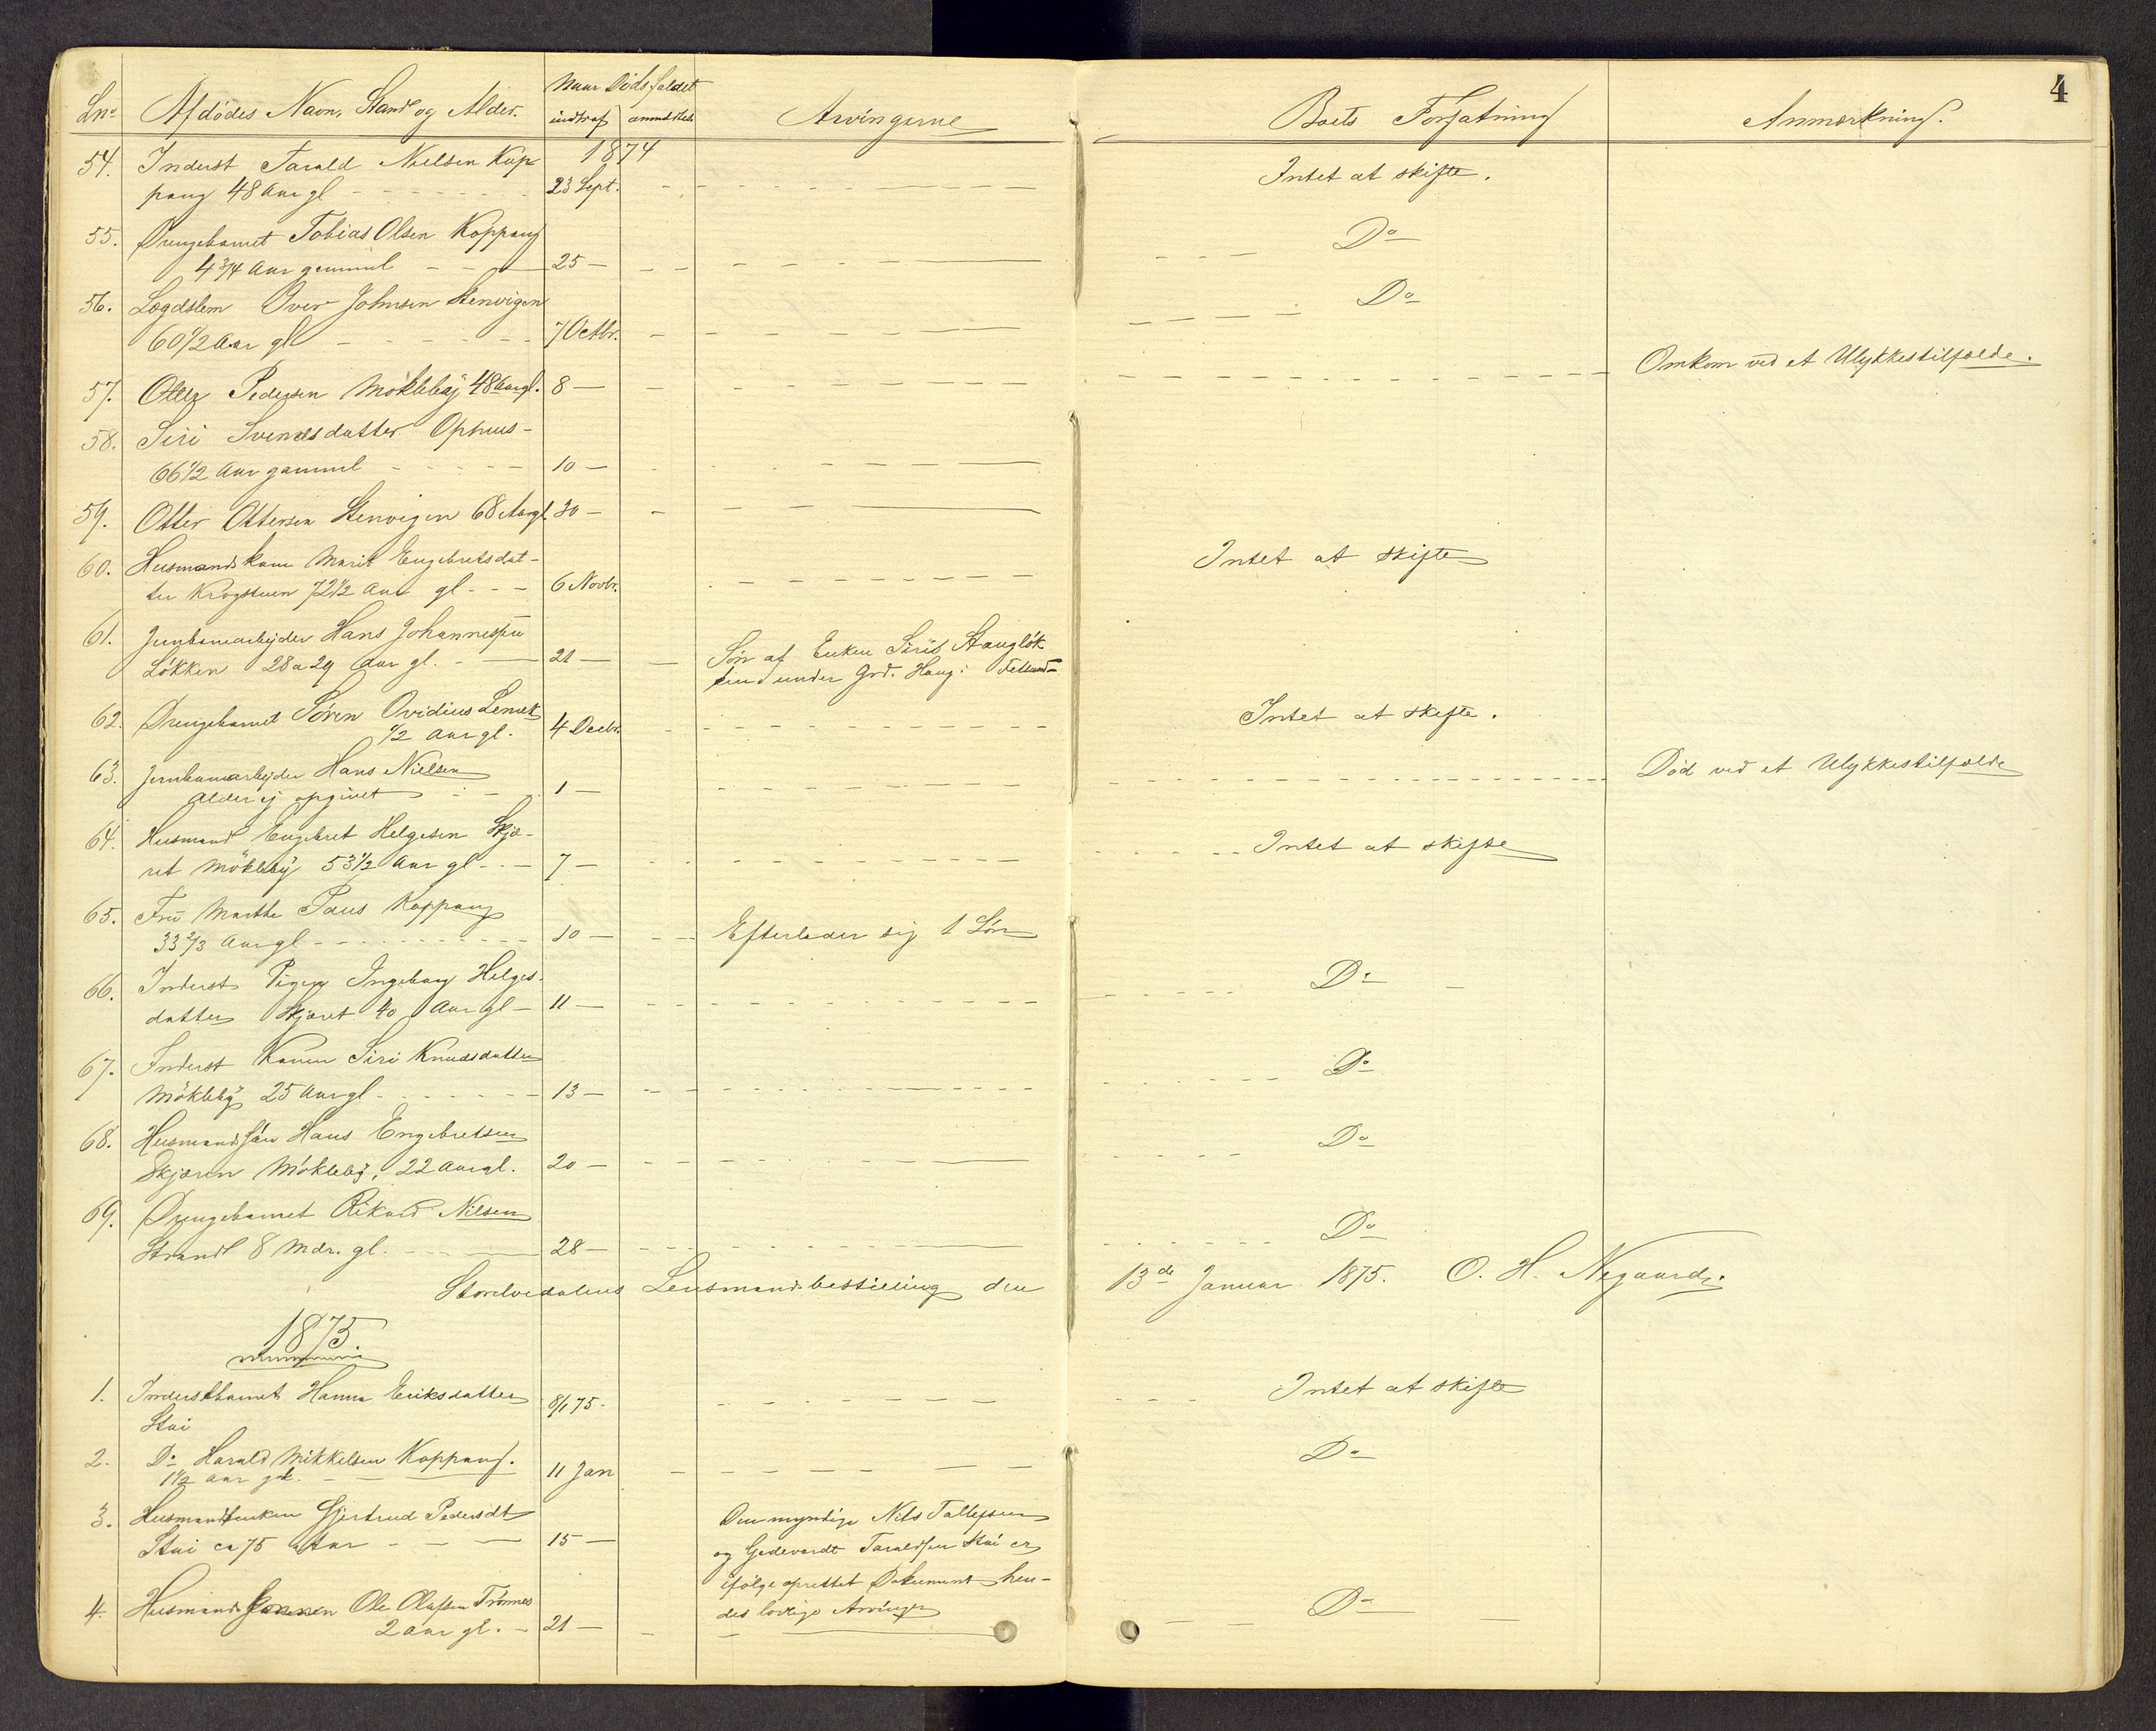 4
Naar Dödsfaldet
Lno Afdödes Navn, Stand og Alder. indtraf anmeldtes Arvingerne Boets Forfatning Anmærkning.
1874
54. Inderst Tarald Nielsen Kop-
pang 48 Aar gl 23 Sept. Intet at skifte.
55. Drengebarnet Tobias Olsen Koppang
4 3/4 Aar gammel 25 — Do
56. Lægdslem Iver Johnsen Stenvigen
60 1/2 Aar gl 7 Octbr. Do
57. Peder­sen Mökleby 48 Aar gl. 8 — Omkom ved et Ulykkestilfælde.
58. Siri Svendsdatter Ophuus-
66 1/2 Aar gammel 10 —
59. Otter Ottersen Stenvigen 68 Aar gl. 30 —
60. Husmandskone Marit Engebretsdat-
ter Krogstuen 72 1/2 Aar gl 6 Novbr. Intet at skifte
61. Jernbanearbejder Hans Johannessen
Lökken 28 a 29 Aar gl. 21 — Sön af Enken Siris Stauglök
ken under Grd. Haug:
62. Drengebarnet Sören Ovidius
1/2 Aar gl. 4 Decbr. Intet at skifte.
63. Jernbanearbejder Hans Nielsen
Alder ej opgivet 1 — Död ved et Ulykkestilfælde
64. Husmand Engebret Helgesen Skjæ-
ret Mökleby 53 1/2 Aar gl 7 — Intet at skifte
65. Fru Marthe Paus Koppang
33 2/3 Aar gl 10 — Efterlader sig 1 Sön
66. Inderst Pigen Ingeborg Helges-
datter Skjæret 40 Aar gl 11 — Do
67. Inderst Konen Siri Knudsdatter
Mökleby 25 Aar gl 13 — Do
68. Husmandssön Hans Engebretsen
Skjæren Mökleby, 22 Aar gl. 20 — Do
69. Drengebarnet Rikard Nilsen
Strand 8 Mdr. gl. 28 — Do
Storelvedalens Lensmandsbestilling den 13de Januar 1875. O. H. Negaard.
1875.
1. Inderstbarnet Hanna Eriksdatter 8/1 75. Intet at skifte
Stai
2. Do Harald Mikkelsen Koppang. Do
1 1/2 Aar gl. 11 Jan
3. Husmandsenken Gjertrud Pedersdt Den myndige Nils Tallefsen
Stai ca 75 Aar 15 — og Gudevardt Taraldsen Stai er
ifölge oprettet Dokument hen-
4. Husmands Ole Olafsen Trönnes des lovlige Arvinger Do
2 Aar gl. 21 —